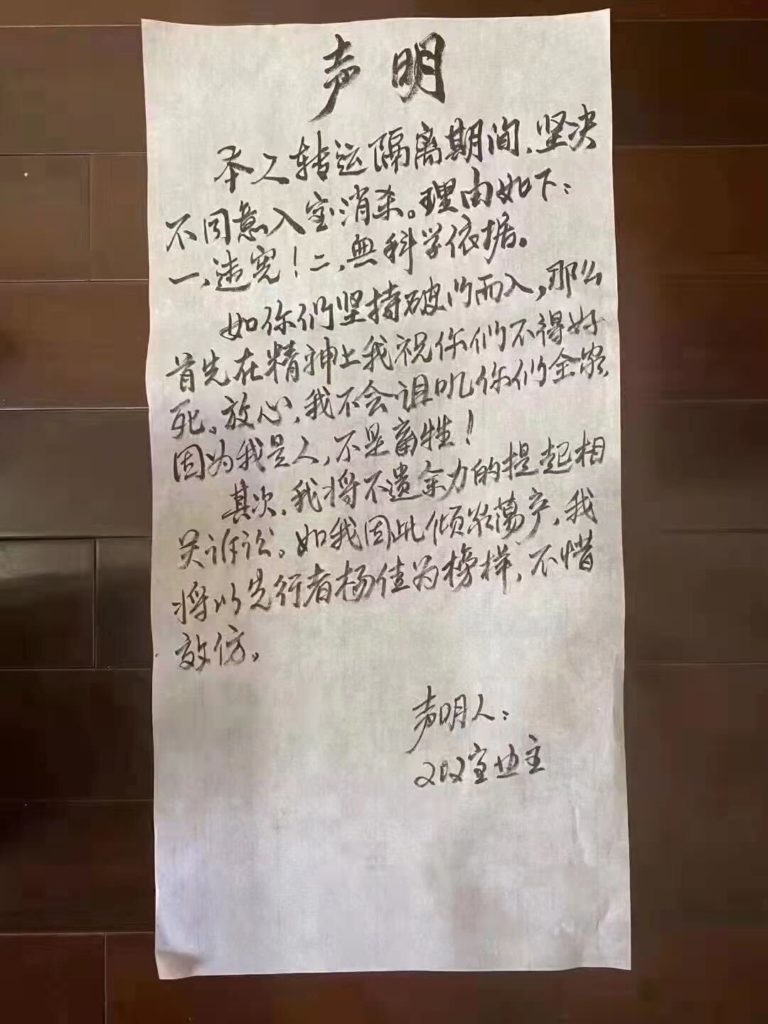 声明
本人转运隔离期间,坚决
不同意入室消杀。理由如下:
一,违宪!二,无科学依据。
如你们坚持破门而入,那么
首先在精神上我祝你们不得好
死。放心,我不会诅咒你们全家,
因为我是人,不是畜牲!
其次,我将不遗余力的提起相
关诉讼。如我因此倾家荡产,我
将以先行者杨佳为榜样,不惜
效仿。
声明人:
202室业主